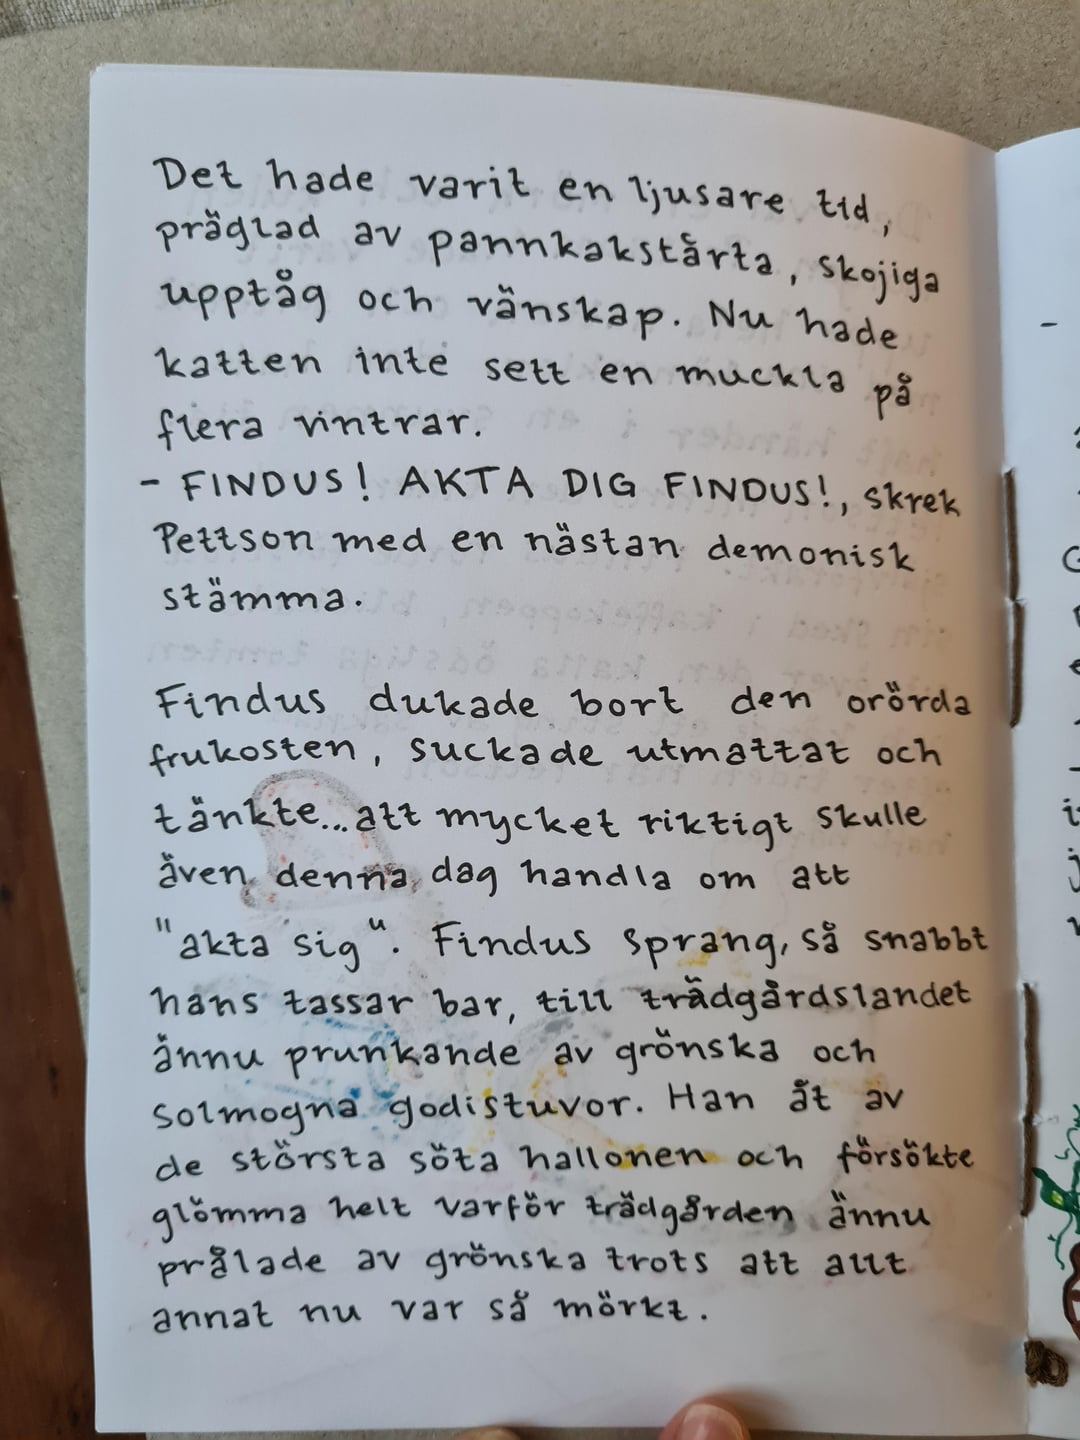 Det hade varit en ljusare tid,
präglad av pannkakstårta, skojiga
upptåg och vänskap. Nu hade
katten inte sett en muckla på
flera vintrar.
- FINDUS! AKTA DIG FINDUS!, skrek
Pettson med en nästan demonisk
stämma.
Findus dukade bort den orörda
frukosten, suckade utmattat och
tänkte... att mycket riktigt skulle
även denna dag handla om att
"akta sig". Findus sprang, så snabbt
hans tassar bar, till trädgårdslandet
ännu prunkande av grönska och
solmogna godistuvor. Han åt av
de största söta hallonen och försökte
glömma helt varför trädgården ännu
prålade av grönska trots att allt
annat nu var så mörkt.